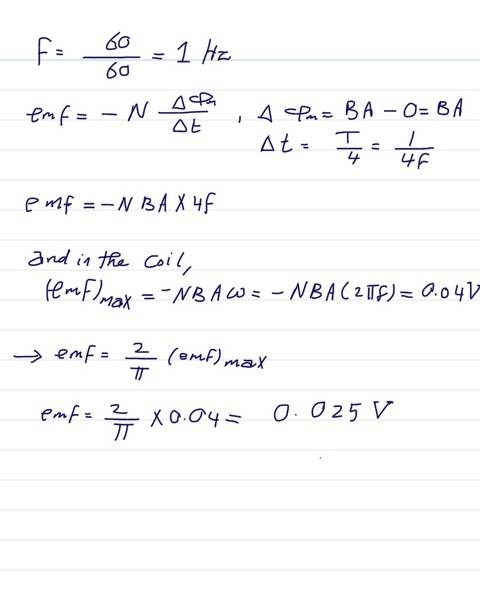 F = 60/60 = 1 Hz
emf = - N Δφm/Δt , Δφm = BA - 0 = BA
Δt = T/4 = 1/4F
emf = - N BA X 4f
and in the coil,
(emF)max = -NBAω = - NBA(2πf) = 0.04V
→ emF = 2/π (emf)max
emF = 2/π X 0.04 = 0.025 V